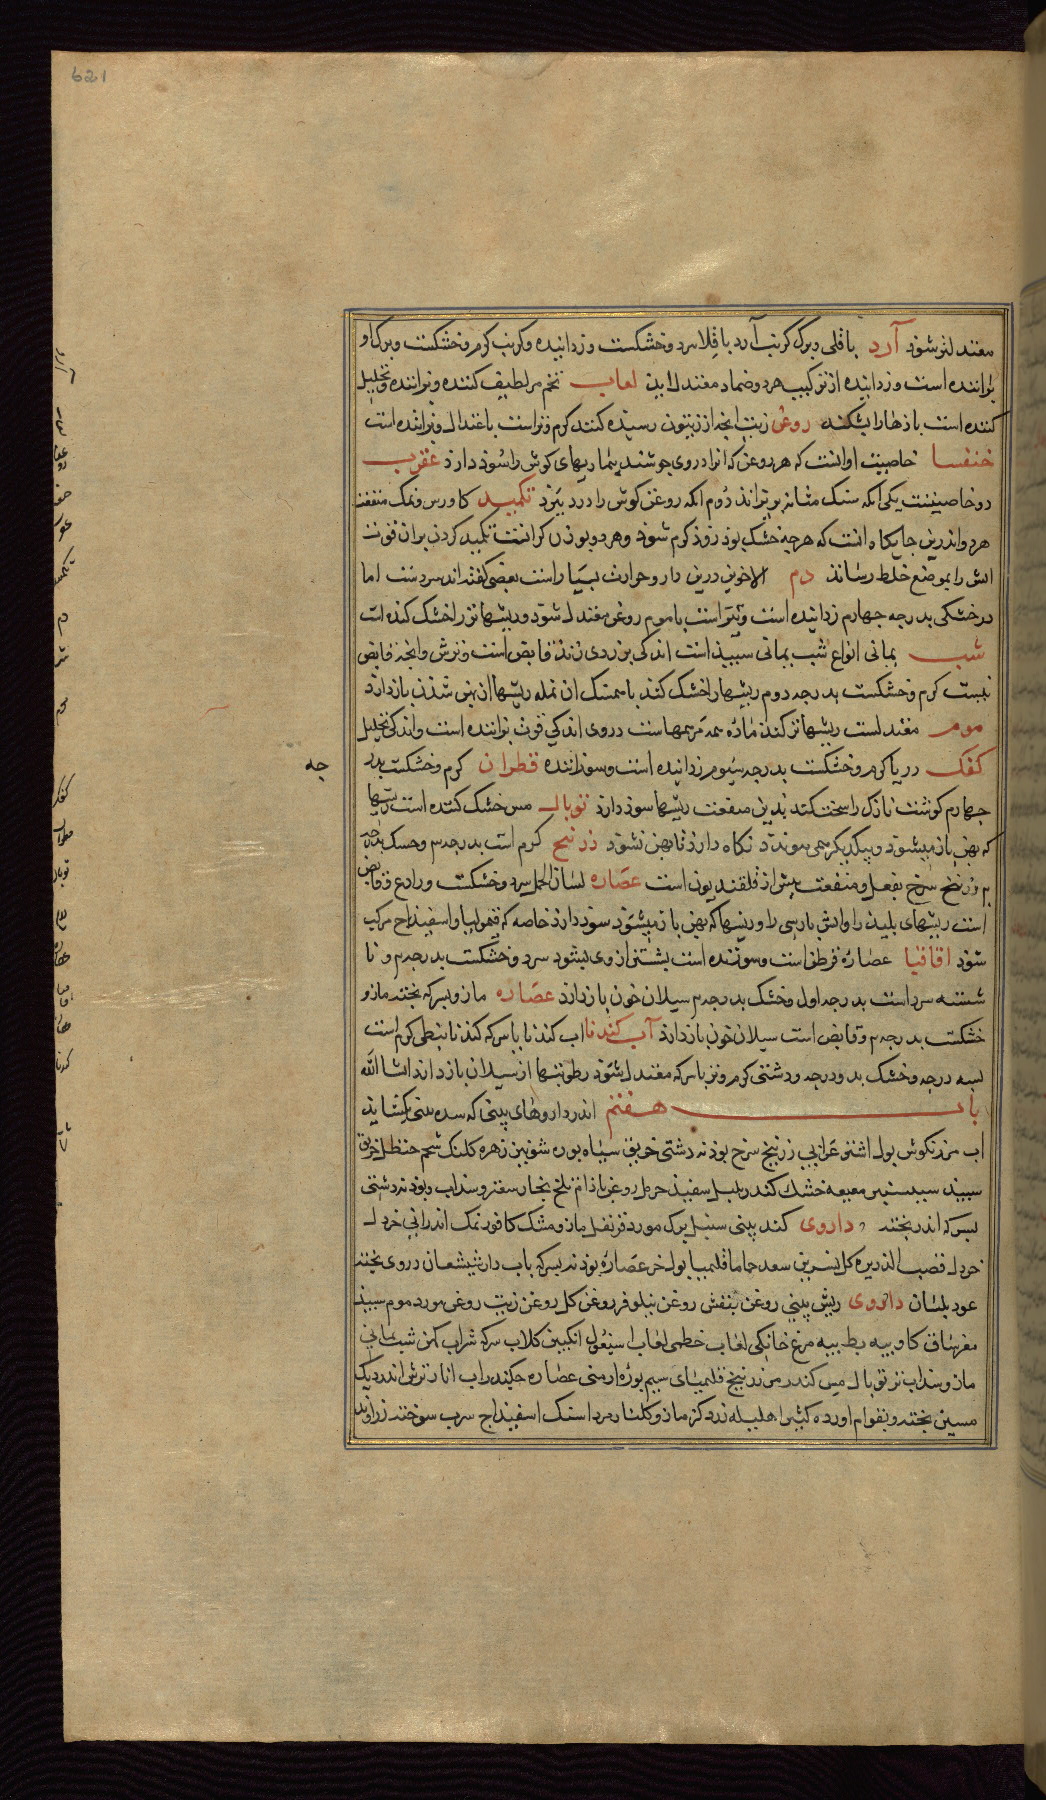 621
معتدلتر شوذ آرد باقلی و برک کرنب آرد باقلا سرد و خشکست و زداینده و کرنب کرم و خشکست و برک او
براننده است و زداینده از ترکیب هردو ضماد معتدل اید لعاب تخم مر لطیف کننده و براننده و تحلیل
کننده است بازها را بشکند روغن زیت انجه از زیتون رسیده کنند کرم و تر است باعتدال و براننده است
خنفسا خاصیت او انست که هر روغن که انرا در وی جوشند بیماریهای کوش را سوذ دارد عقرب
دو خاصیتست یکی انکه سنک مثانه بریزاند دوم انکه روغن کوش را درد ببرد تکمید کاورس و نمک منفعت
هردو اندرین جایکاه انست که هرجه خشک بود زوذ کرم شود و هردو بوذن کرانست تکمید کردن بران قوت
اتش را بموضع خلط رسانذ دم الاخوین درین دارو حرارت بسیار است بعضی کفته اند سردست اما
در خشکی بدرجه جهارم زداینده است و تیز است با موم روغن معتدل شوذ و ریشهاء تر را خشک کننده است
شب یمانی انواع شب یمانی سبید است اندکی بزردی زند قابض است و ترش و انجه قابض
نیست کرم و خشکست بدرجه دوم ریشها را خشک کند با همسنک ان نمک ریشها از بهن شذن بازدارد
موم معتدلست ریشها نرکند ماده همه مرهمهاست در وی اندکی قوت براننده است و اندکی تحلیل
کفک دریا کرم و خشکست بدرجه سیوم زداینده است و سوزاننده قطران کرم و خشکست بدر
جه
جهارم کوشت نازک را سخت کند بدین منفعت ریشها سوذ دارد توبال مس خشک کننده است ریشها
که بهن باز میشوذ و بیکدیکر همی بیوندد نکاه دارد تا بهن نشود زرنیخ کرم است بدرجه م و خشک بدرجه
م زرنیخ سرخ بفعل و منفعت بیش از قلقندیون است عصاره لسان الحمل سرد و خشکست و رادع و قابض
است ریشهای بلید را و اتش بارسی را و ریشها که بهن باز میشوذ سوذ دارد خاصه که قیمولیا و اسفیذاج مرکب
شوذ اقاقیا عصاره قرظ است و سوزنده است بشستن از وی بشود سرد و خشکست بدرجه م و نا
شسته سرد است بدرجه اول و خشک بدرجه م سیلان خون بازدارد عصاره مازو بسرکه بخته مازو
خشکست بدرجه م و قابض است سیلان خون بازدارد آب کندنا اب کندنا باسرکه کندنا نبطی کرم است
بسه درجه و خشک بدو درجه و دشتی کرم و تر باسرکه معتدل شوذ رطوبتها از سیلان بازدارد انشا الله
باب هفتم اندر داروهای بینی که سده بینی بکشاید
اب مرزنکوش بول اشتر عرابی زرنیخ سرخ بوذنه دشتی خربق سیاه بوره شونیز زهره کلنک شحم حنظل خربق
سبید میعه خشک کندر بلبل سفیذ حرمل روغن باذام تلخ بخار سعتر و سذاب و بوذنه دشتی
بسرکه اندر بخته داروی کند بینی سنبل برک مورد قرنفل مازو مشک کافور نمک اندرانی خردل
خردل قصب الذریره کل نسرین سعد حماما قلیمیا بول خر عصاره بوذنه بسرکه باب دارشیشعان در وی بخته
عود بلسان داروی ریش بینی روغن بنفش روغن نیلوفر روغن کل روغن زیت روغن مورد موم سبید
مغز ساق کاو بیه بط بیه مرغ خانکی لعاب خطمی لعاب اسبغول انکبین کلاب سرکه شراب کهن شب یمانی
مازو سذاب تر توبال مس کندر مر زرنیخ قلیمیای سیم بوره ارمنی عصاره جکندر اب انار ترش اندر دیک
مسین بخته و بقوام اورده کثیرا هلیله زرد کزمازو کلنار مرداسنک اسفیذاج سرب سوخته زراوند